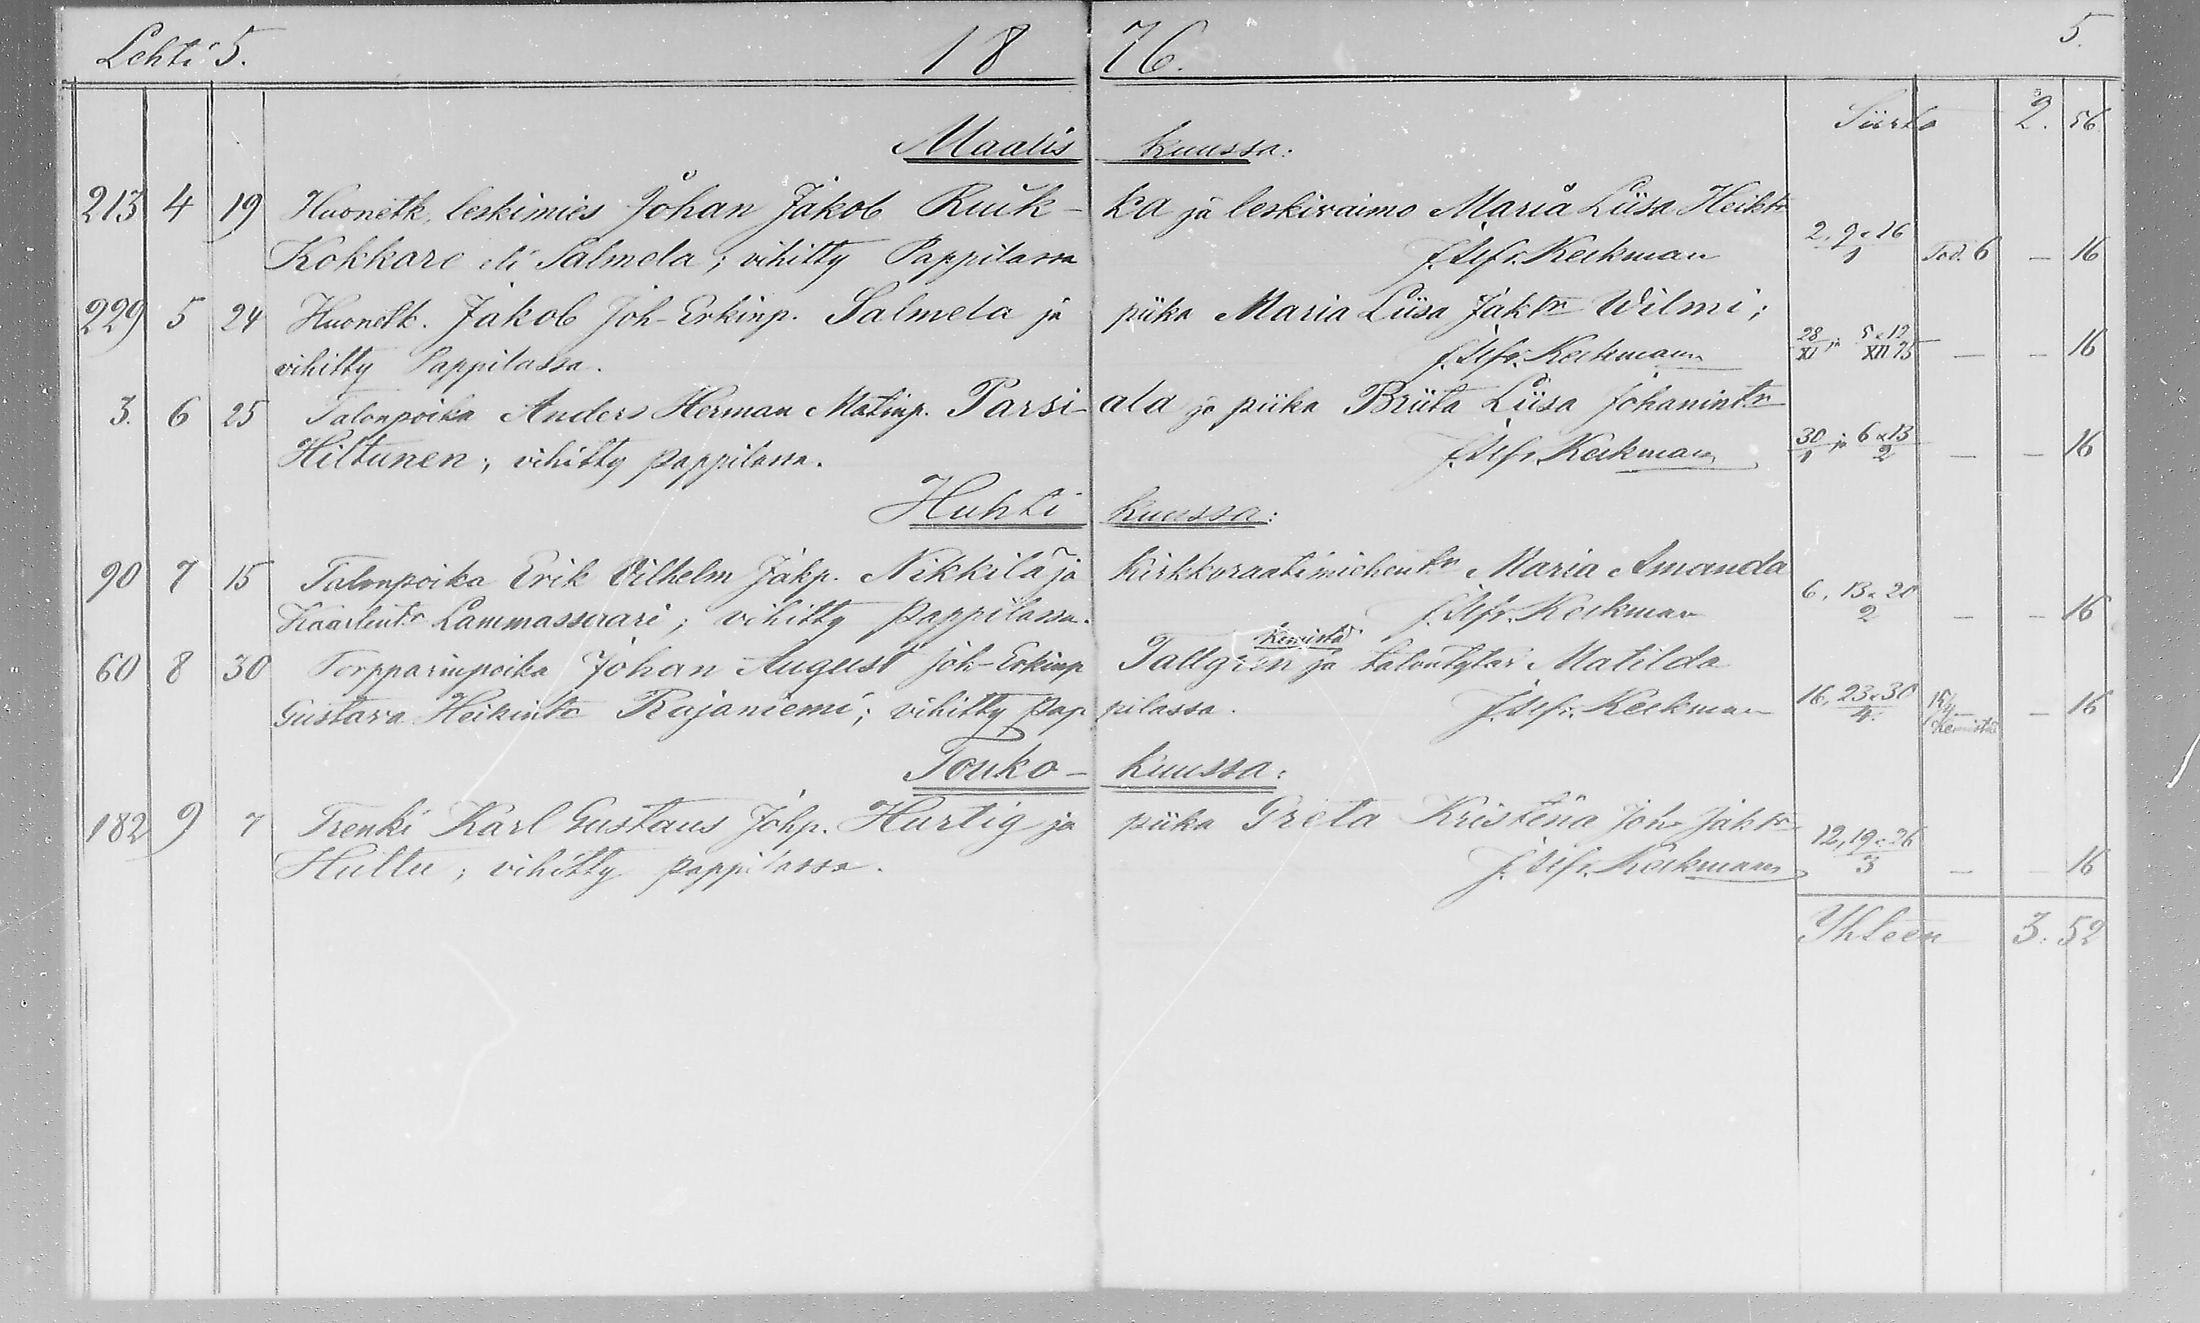 Lehti 5. 18 76. 5.
Siirto 2. 56
Maalis kuussa:
213 4 19 Huonetk. leskimies Johan Jakob Ruik- ka ja leskivaimo Maria Liisa Heiktr
Kokkare eli Salmela; vihitty Pappilassa J. Alfr. Keckman 2, 9 & 16/1 Tod. 6 — 16
229 5 24 Huonetk. Jakob Joh-Erkinp. Salmela ja piika Maria Liisa Jaktr Wilmi;
vihitty Pappilassa. J. Alfr. Keckman 28/XI ja 5 & 12/XII 75 — — 16
3. 6 25 Talonpoika Anders Herman Matinp. Parsi- ala ja piika Briita Liisa Johanintr
Hiltunen; vihitty pappilassa. J. Alfr. Keckman 30/1 ja 6 & 13/2 — — 16
Huhti kuussa:
90 7 15 Talonpoika Erik Vilhelm Jakp. Nikkilä ja kirkkoraatimiehentr Maria Amanda
Kaarlintr Lammassaari; vihitty pappilassa. J. Alfr. Keckman 6, 13 & 20/2 — — 16
Kemistä
60 8 30 Torpparinpoika Johan August Joh-Erkinp Tallgren ja talontytär Matilda
Gustava Heikintr Rajaniemi; vihitty pap pilassa. J. Alfr. Keckman 16, 23 & 30/4. 15/4 Kemistä — 16
Touko- kuussa:
182 9 7 Trenki Karl Gustaus Johp. Hurtig ja piika Greta Kristina Joh- Jaktr
Huttu; vihitty pappilassa. J. Alfr. Keckman 12, 19 & 26/3 — — 16
Yhteen 3. 52